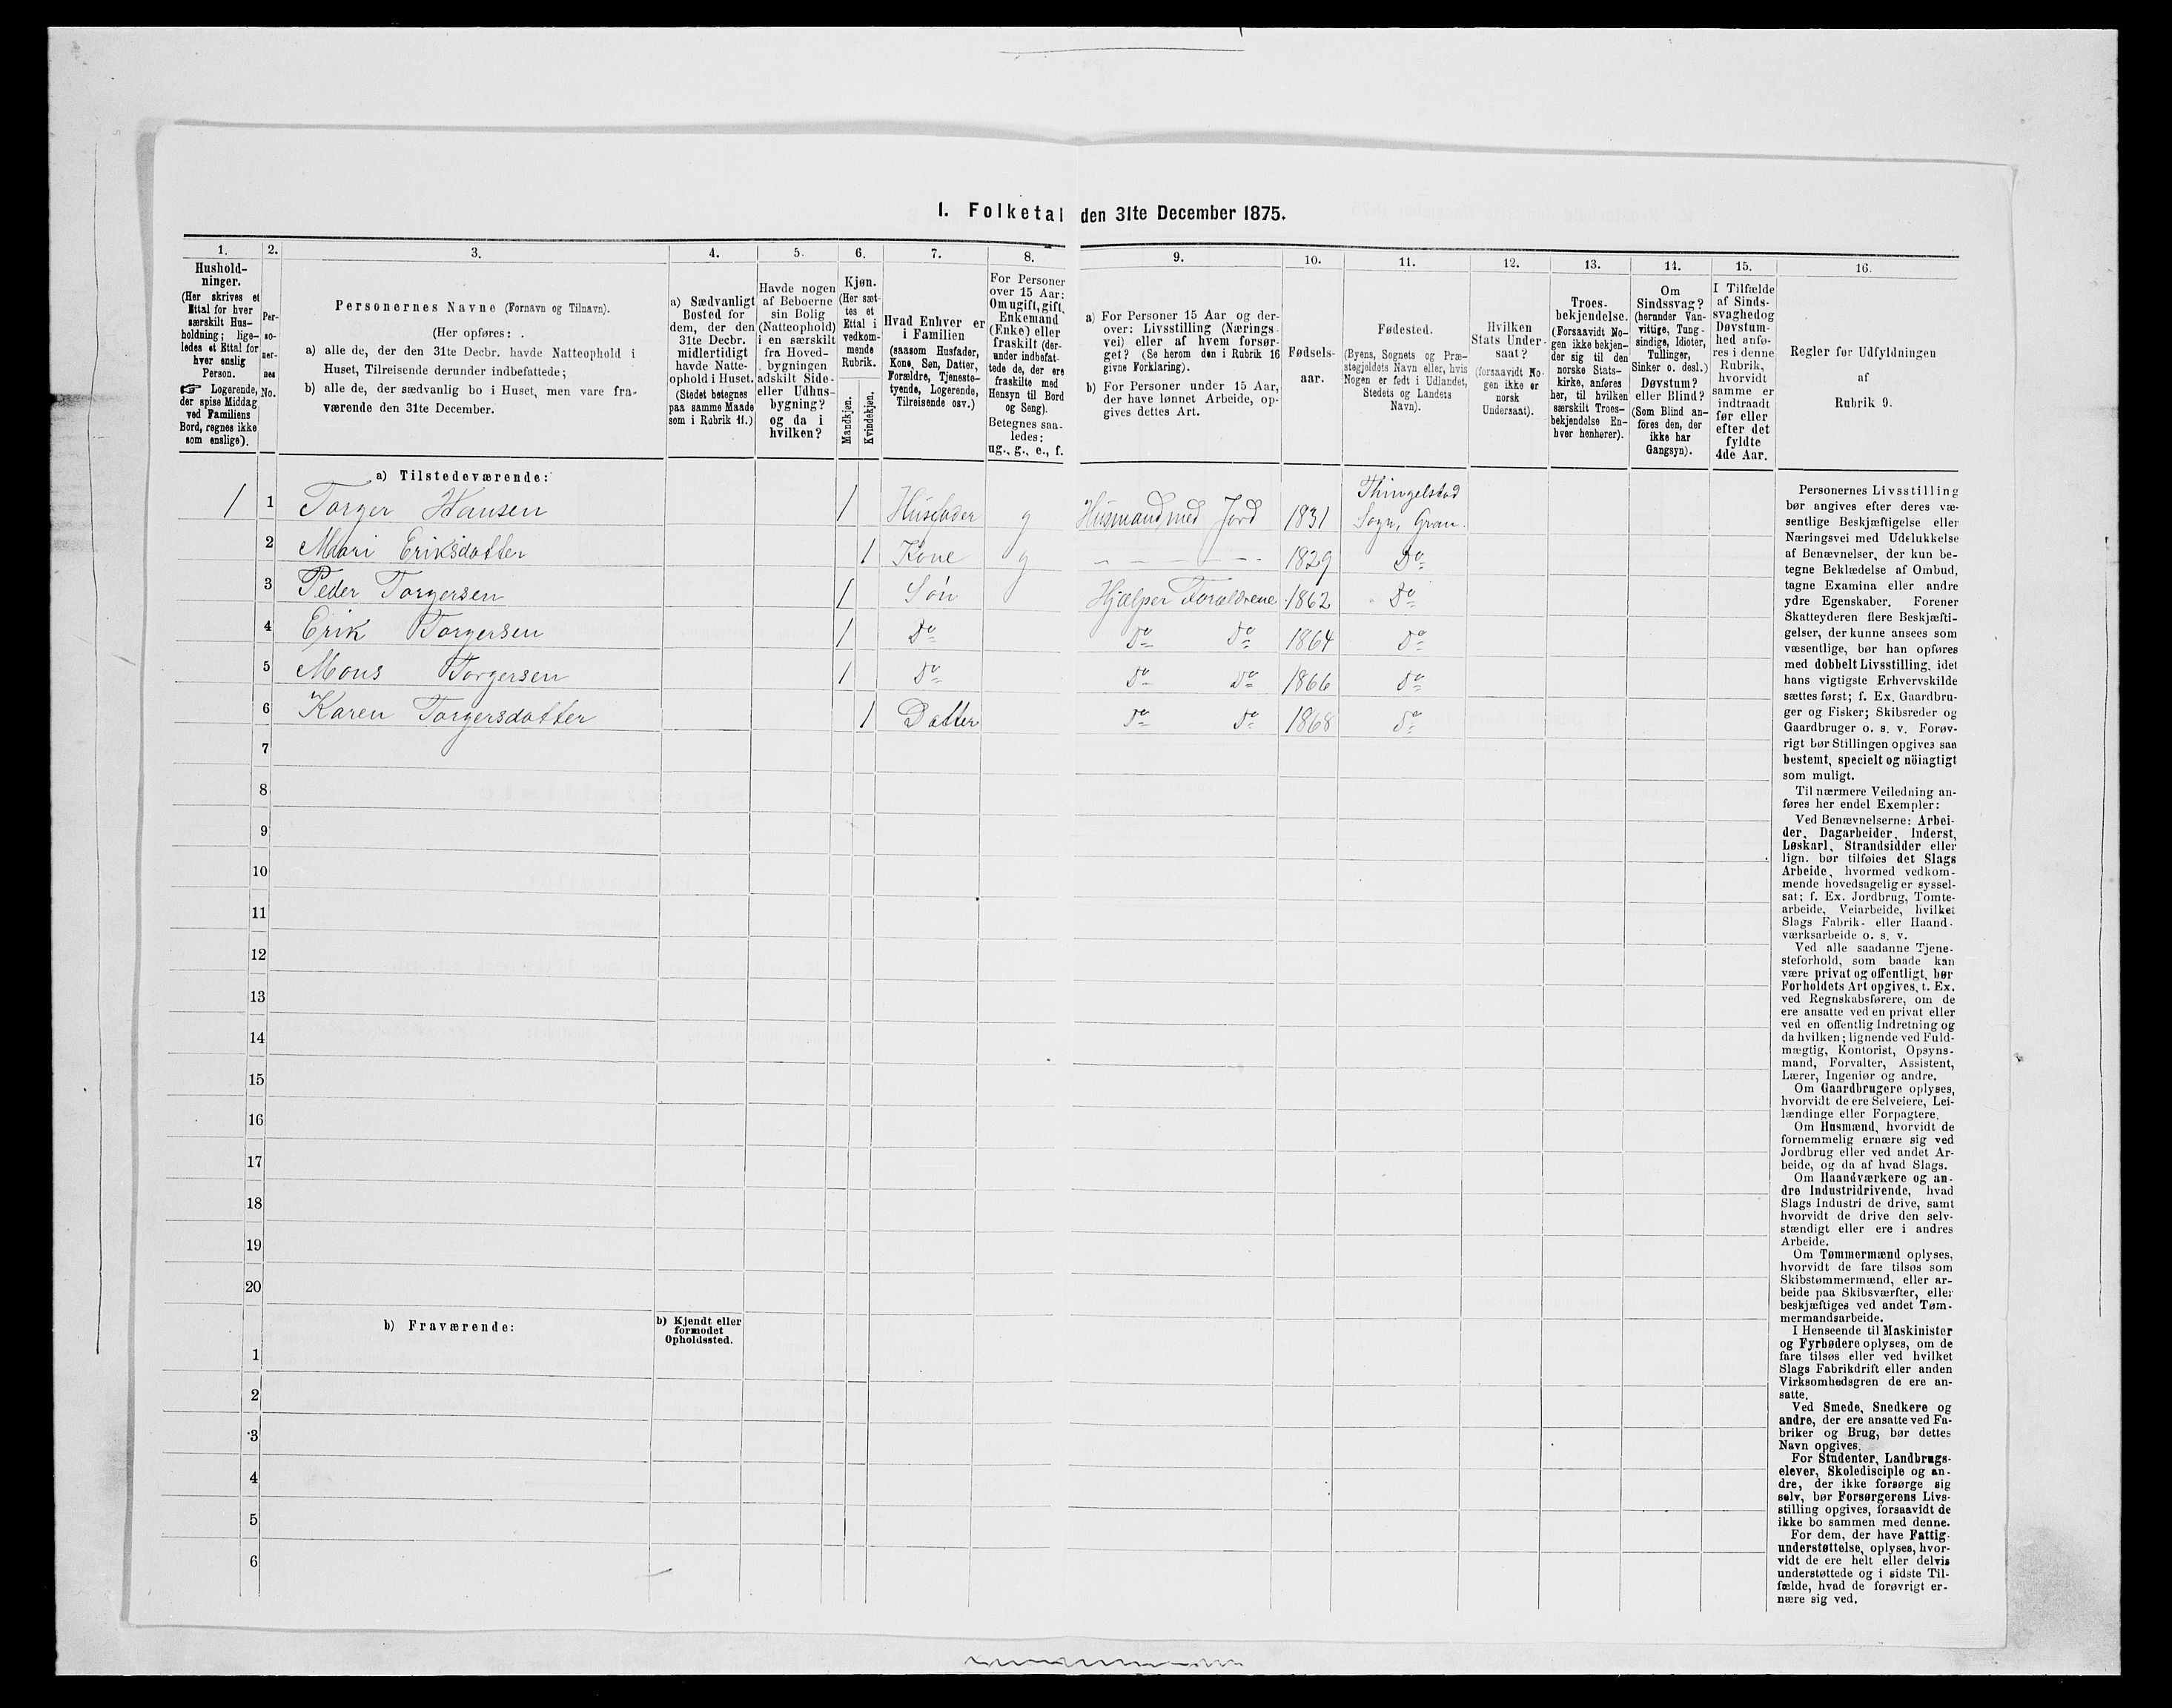 I. Folketal den 31te December 1875.
1.
Hushold-
ninger.
(Her skrives et
Ettal for hver
særskilt Hus-
holdning; lige-
ledes et Ettal for
hver enslig
Person.
☞ Logerende,
der spise Middag
ved Familiens
Bord, regnes ikke
som enslige).
2.
Per-
so-
ner-
nes
No.
3.
Personernes Navne (Fornavn og Tilnavn).
(Her opføres:
a) alle de, der den 31te Decbr. havde Natteophold i
Huset, Tilreisende derunder indbefattede;
b) alle de, der sædvanlig bo i Huset, men vare fra-
værende den 31te December.
4.
a) Sædvanligt
Bosted for
dem, der den
31te Decbr.
midlertidigt
havde Natte-
ophold i Huset.
(Stedet betegnes
paa samme Maade
som i Rubrik 11.)
5.
Havde nogen
af Beboerne
sin Bolig
(Natteophold)
i en særskilt
fra Hoved-
bygningen
adskilt Side-
eller Udhus-
bygning?
og da i
hvilken?
6.
Kjøn.
(Her sæt-
tes et
Ettal i
vedkom-
mende
Rubrik.
Mandkjøn.
Kvindekjøn.
7.
Hvad Enhver er
i Familien
(saasom Husfader,
Kone, Søn, Datter,
Forældre, Tjeneste-
tyende, Logerende,
Tilreisende osv.)
8.
For Personer
over 15 Aar:
Om ugift, gift,
Enkemand
(Enke) eller
fraskilt (der-
under indbefat-
tede de, der ere
fraskilte med
Hensyn til Bord
og Seng).
Betegnes saa-
ledes:
ug., g., e., f.
9.
a) For Personer 15 Aar og der-
over: Livsstilling (Nærings-
vei) eller af hvem forsør-
get? (Se herom den i Rubrik 16
givne Forklaring).
b) For Personer under 15 Aar,
der have lønnet Arbeide, op-
gives dettes Art.
10.
Fødsels-
aar.
11.
Fødested.
(Byens, Sognets og Præ-
stegjeldets Navn eller, hvis
Nogen er født i Udlandet,
Stedets og Landets
Navn).
12.
Hvilken
Stats Under-
saat?
(forsaavidt No-
gen ikke er
norsk
Undersaat).
13.
Troes-
bekjendelse.
(Forsaavidt No-
gen ikke bekjen-
der sig til den
norske Stats-
kirke, anføres
her, til hvilken
særskilt Troes-
bekjendelse En-
hver henhører).
14.
Om
Sindssvag?
(herunder Van-
vittige, Tung-
sindige, Idioter,
Tullinger,
Sinker o. desl.)
Døvstum?
eller Blind?
(Som Blind an-
föres den, der
ikke har
Gangsyn).
15.
I Tilfælde
af Sinds-
svaghedog
Døvstum-
hed anfø-
res i denne
Rubrik,
hvorvidt
samme er
indtraadt
før eller
efter det
fyldte
4de Aar.
16.
Regler for Udfyldningen
af
Rubrik 9.
a) Tilstedeværende:
1 1 Torger Hansen 1 Husfader g Husmand med Jord 1831 Thingelstad Sogn, Gran.
2 Mari Eriksdatter 1 Kone g - - - - - 1829 Do
3 Peder Torgersen 1 Søn Hjælper Forældrene 1862 Do
4 Erik Torgersen 1 Do Do Do 1864 Do
5 Mons Torgersen 1 Do Do Do 1866 Do
6 Karen Torgersdatter 1 Datter Do Do 1868 Do
7
8
9
10
11
12
13
14
15
16
17
18
19
20
b) Fraværende:
b) Kjendt eller
formodet
Opholdssted.
1
2
3
4
5
6
Personernes Livsstilling
bør angives efter deres væ-
sentlige Beskjæftigelse eller
Næringsvei med Udelukkelse
af Benævnelser, der kun be-
tegne Beklædelse af Ombud,
tagne Examina eller andre
ydre Egenskaber. Forener
Skatteyderen flere Beskjæfti-
gelser, der kunne ansees som
væsentlige, bør han opføres
med dobbelt Livsstilling, idet
hans vigtigste Erhvervskilde
sættes først; f. Ex. Gaardbru-
ger og Fisker; Skibsreder og
Gaardbruger o. s. v. Forøv-
rigt bør Stillingen opgives saa
bestemt, specielt og nöiagtigt
som muligt.
Til nærmere Veiledning an-
føres her endel Exempler:
Ved Benævnelserne: Arbei-
der, Dagarbeider, Inderst,
Løskarl, Strandsidder eller
lign. bør tilføies det Slags
Arbeide, hvormed vedkom-
mende hovedsagelig er syssel-
sat; f. Ex. Jordbrug, Tomte-
arbeide, Veiarbeide, hvilket
Slags Fabrik- eller Haand-
værksarbeide o. s. v.
Ved alle saadanne Tjene-
steforhold, som baade kan
være privat og offentligt, bør
Forholdets Art opgives, t. Ex.
ved Regnskabsførere, om de
ere ansatte ved en privat eller
ved en offentlig Indretning og
da hvilken; lignende ved Fuld-
mægtig, Kontorist, Opsyns-
mand, Forvalter, Assistent,
Lærer, Ingeniør og andre.
Om Gaardbrugere oplyses,
hvorvidt de ere Selveiere, Lei-
lændinge eller Forpagtere.
Om Husmænd, hvorvidt de
fornemmelig ernære sig ved
Jordbrug eller ved andet Ar-
beide, og da af hvad Slags.
Om Haandværkere og an-
dre Industridrivende, hvad
Slags Industri de drive, samt
hvorvidt de drive den selv-
stændigt eller ere i andres
Arbeide.
Om Tømmermænd oplyses,
hvorvidt de fare tilsøs som
Skibstømmermænd, eller ar-
beide paa Skibsværfter, eller
beskjæftiges ved andet Tøm-
mermandsarbeide.
I Henseende til Maskinister
og Fyrbødere oplyses, om de
fare tilsøs eller ved hvilket
Slags Fabrikdrift eller anden
Virksomhedsgren de ere an-
satte.
Ved Smede, Snedkere og
andre, der ere ansatte ved Fa-
briker og Brug, bør dettes
Navn opgives.
For Studenter, Landbrugs-
elever, Skoledisciple og an-
dre, der ikke forsørge sig
selv, bør Forsørgerens Livs-
stilling opgives, forsaavidt de
ikke bo sammen med denne.
For dem, der have Fattig-
understøttelse, oplyses, hvor-
vidt de ere helt eller delvis
understøttede og i sidste Til-
fælde, hvad de forøvrigt er-
nære sig ved.